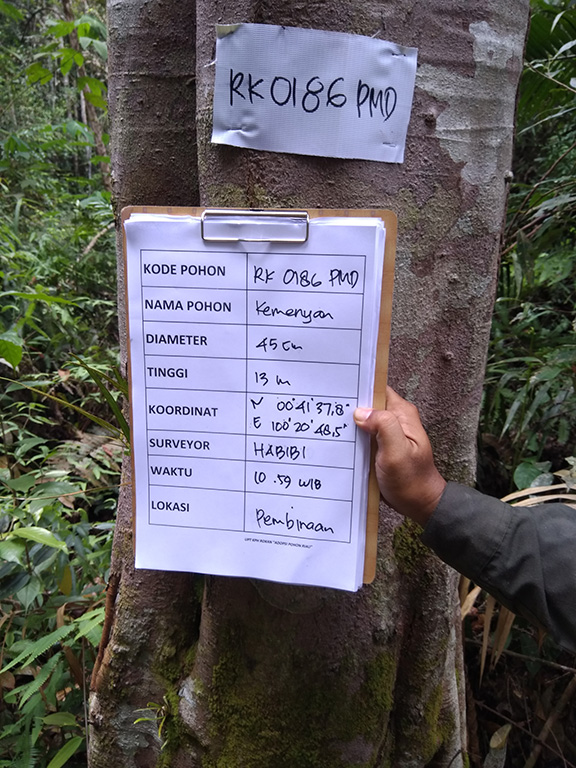 RK 0186 PMD
KODE POHON RK 0186 PMD
NAMA POHON Kemenyan
DIAMETER 45 cm
TINGGI 13 m
KOORDINAT N 00°41'37,8"
E 100°20'48,5"
SURVEYOR HABIBI
WAKTU 10.59 WIB
LOKASI Pembinaan
UPT KPH ROKAN "ADOPSI POHON RIAU"